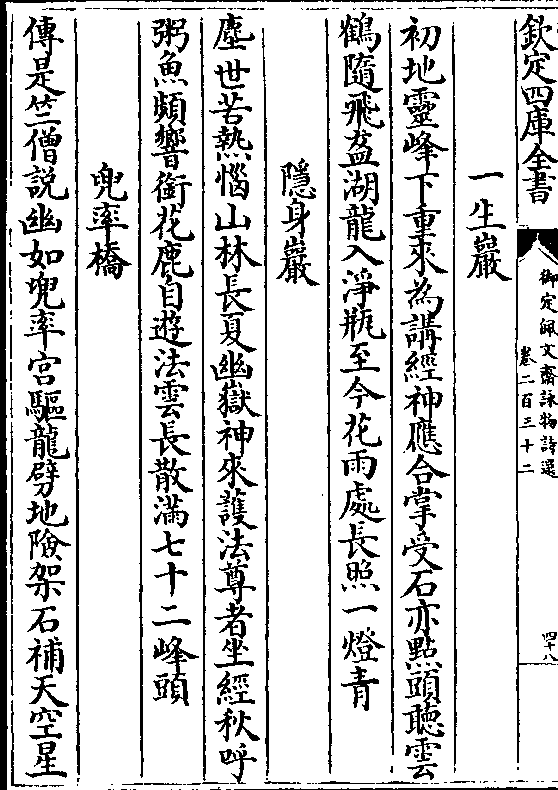 欽定四庫全書
御定佩文齋詠物詩選
卷二百三十二
四十八
一生巖
初地靈峰下重來為講經神應合掌受石亦點頭聽雲
鶴隨飛盋湖龍入淨瓶至今花雨處長照一燈青
隱身巖
塵世苦熱惱山林長夏幽嶽神來護法尊者坐經秋呼
粥魚頻響銜花鹿自遊法雲長散滿七十二峰頭
兜率橋
傳是竺僧說幽如兜率宮驅龍劈地險架石補天空星